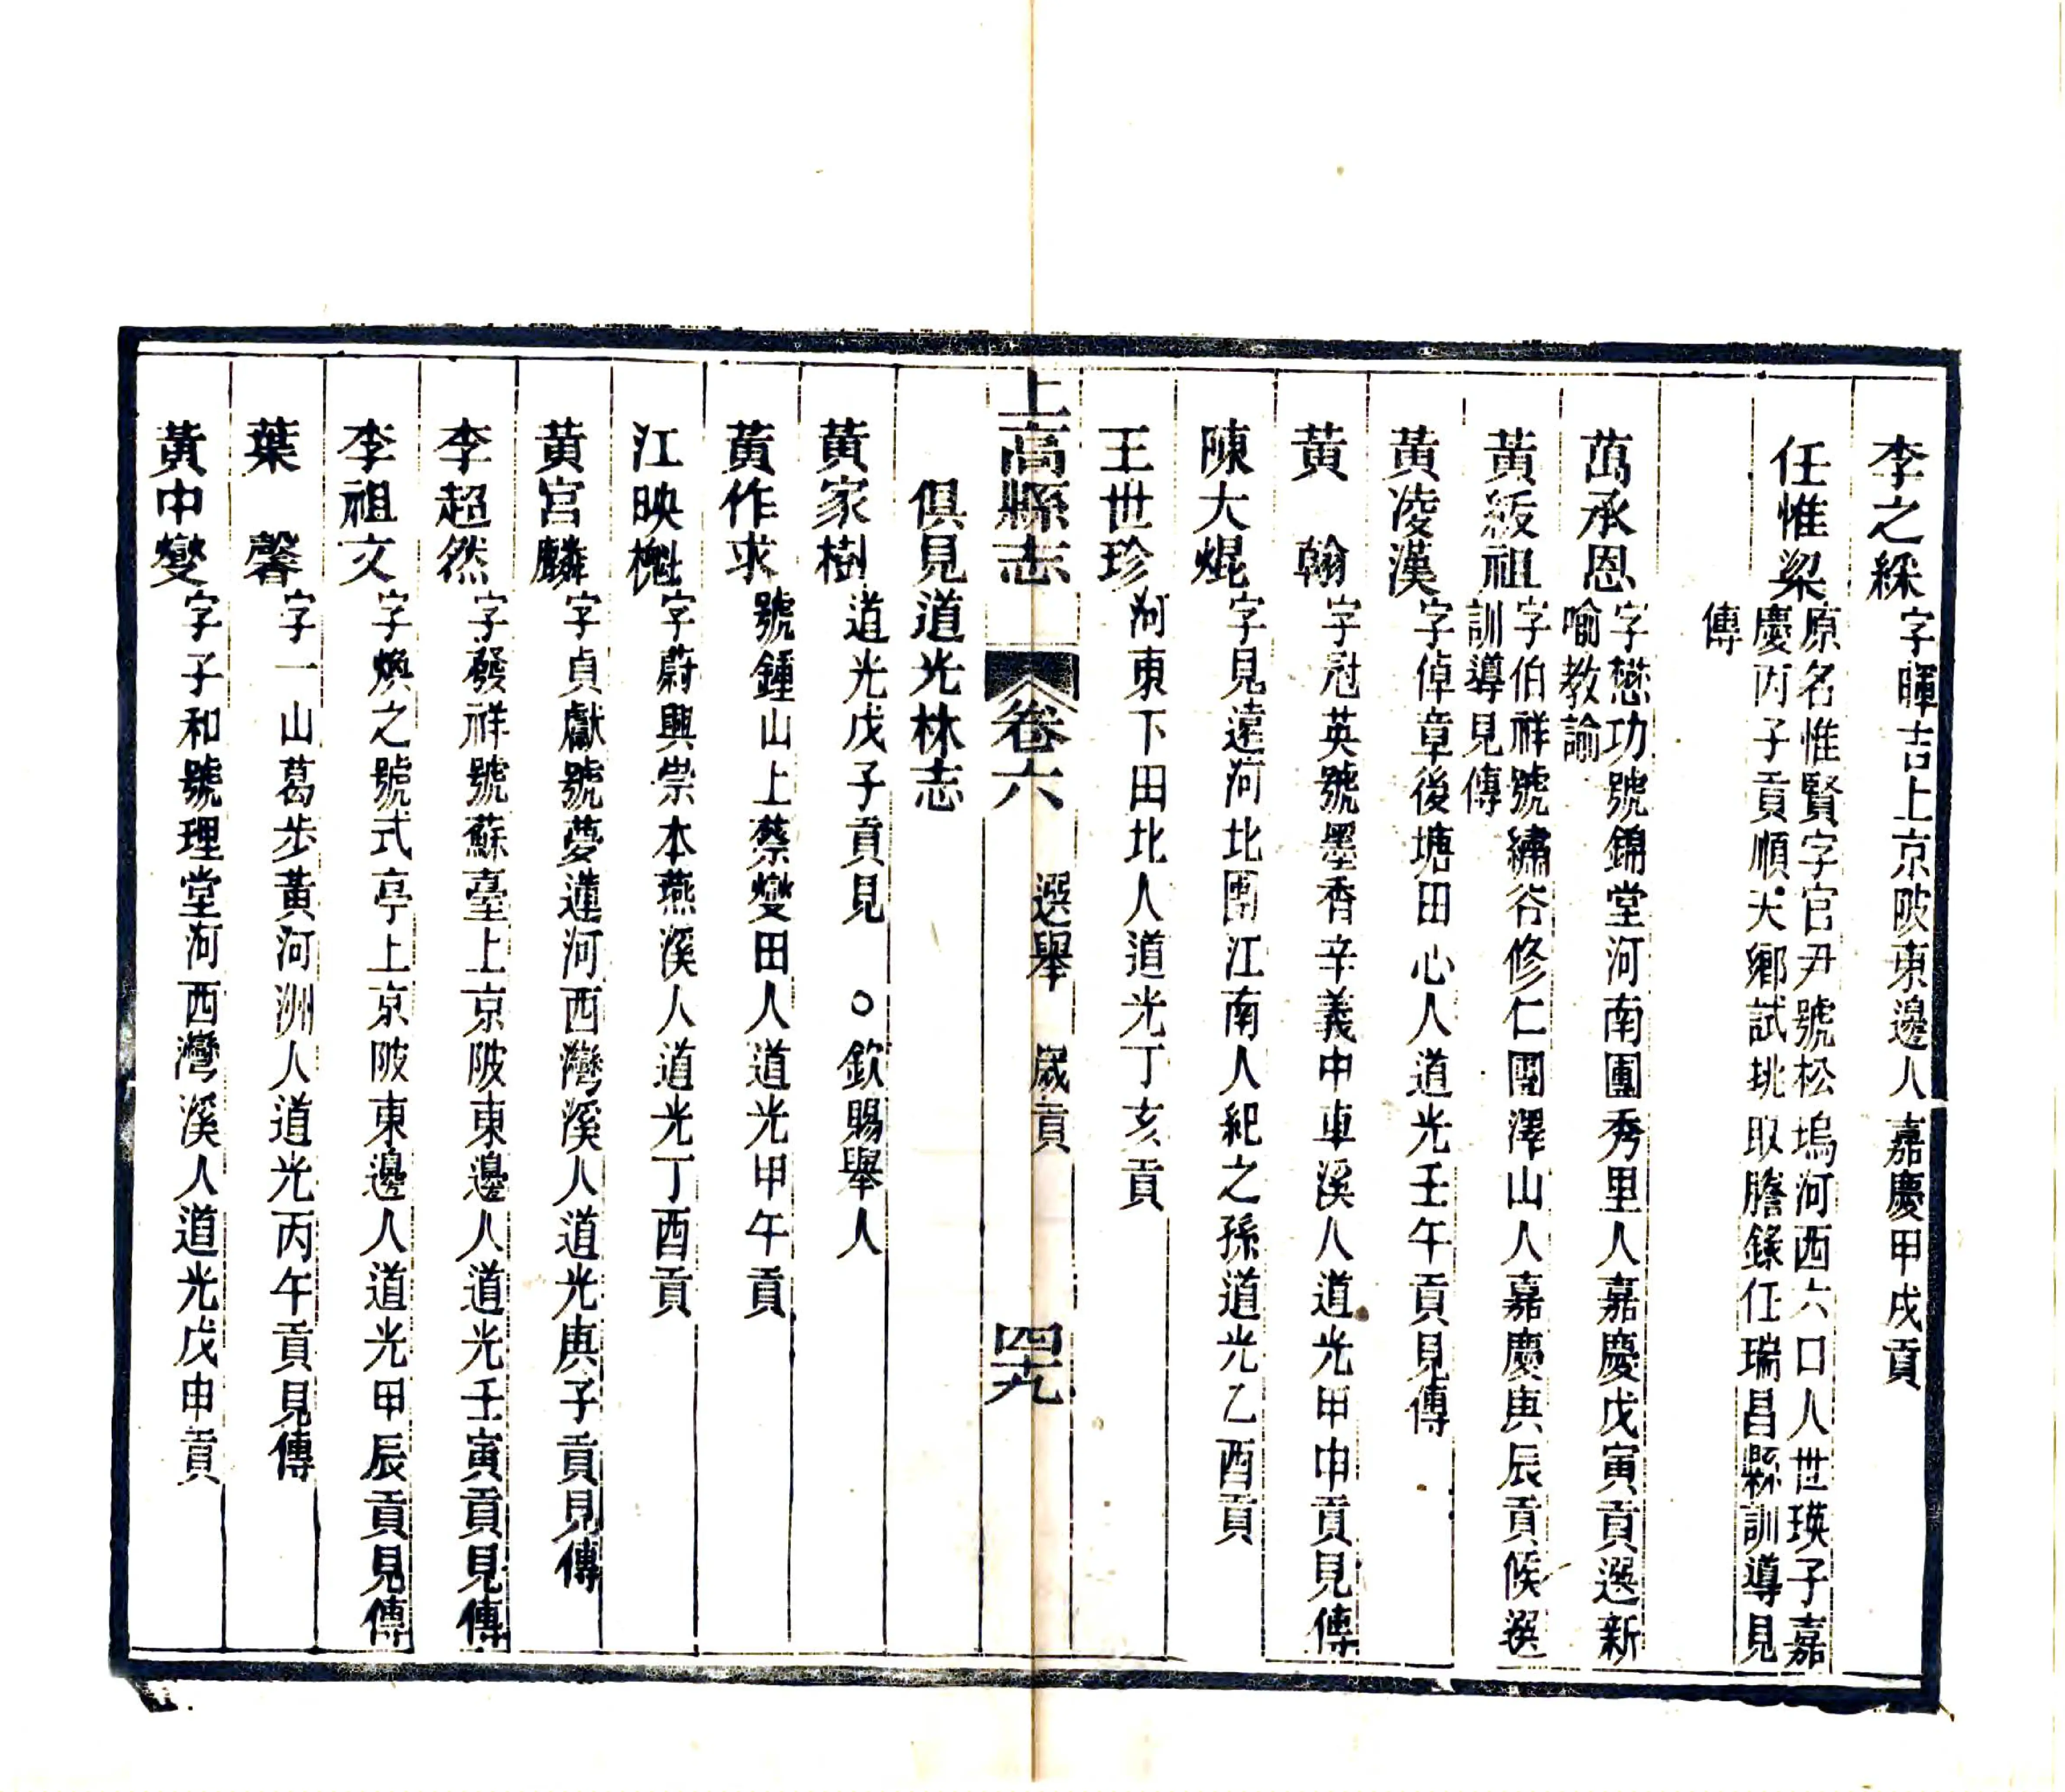 李之綵 字暉吉上京陂東邊人嘉慶甲戌貢
任惟梁 原名惟賢字官尹號松塢河西六口人世瑛子嘉
慶丙子貢順天鄉試挑取謄錄任瑞昌縣訓導見
傳
萬承恩 字懋功號錦堂河南團秀里人嘉慶戊寅貢選新
喻教諭
黃紱祖 字伯祥號繡谷修仁團澤山人嘉慶庚辰貢候選
訓導見傳
黃凌漢 字倬章後塘田心人道光壬午貢見傳
黃翰 字冠英號墨香辛義中車溪人道光甲申貢見傳
陳大焜 字見遠河北團江南人紀之孫道光乙酉貢
王世珍 河東下田北人道光丁亥貢
上高縣志 卷六 選舉 歲貢 四十九
俱見道光林志
黃家樹 道光戊子貢見 ○欽賜舉人
黃作求 號鍾山上蔡燮田人道光甲午貢
江映樾 字蔚興崇本燕溪人道光丁酉貢
黃宮麟 字貞獻號夢蓮河西灣溪人道光庚子貢見傳
李超然 字發祥號蘇臺上京陂東邊人道光壬寅貢見傳
李祖文 字煥之號式亭上京陂東邊人道光甲辰貢見傳
葉馨 字一山葛步黃河洲人道光丙午貢見傳
黃中燮 字子和號理堂河西灣溪人道光戊申貢